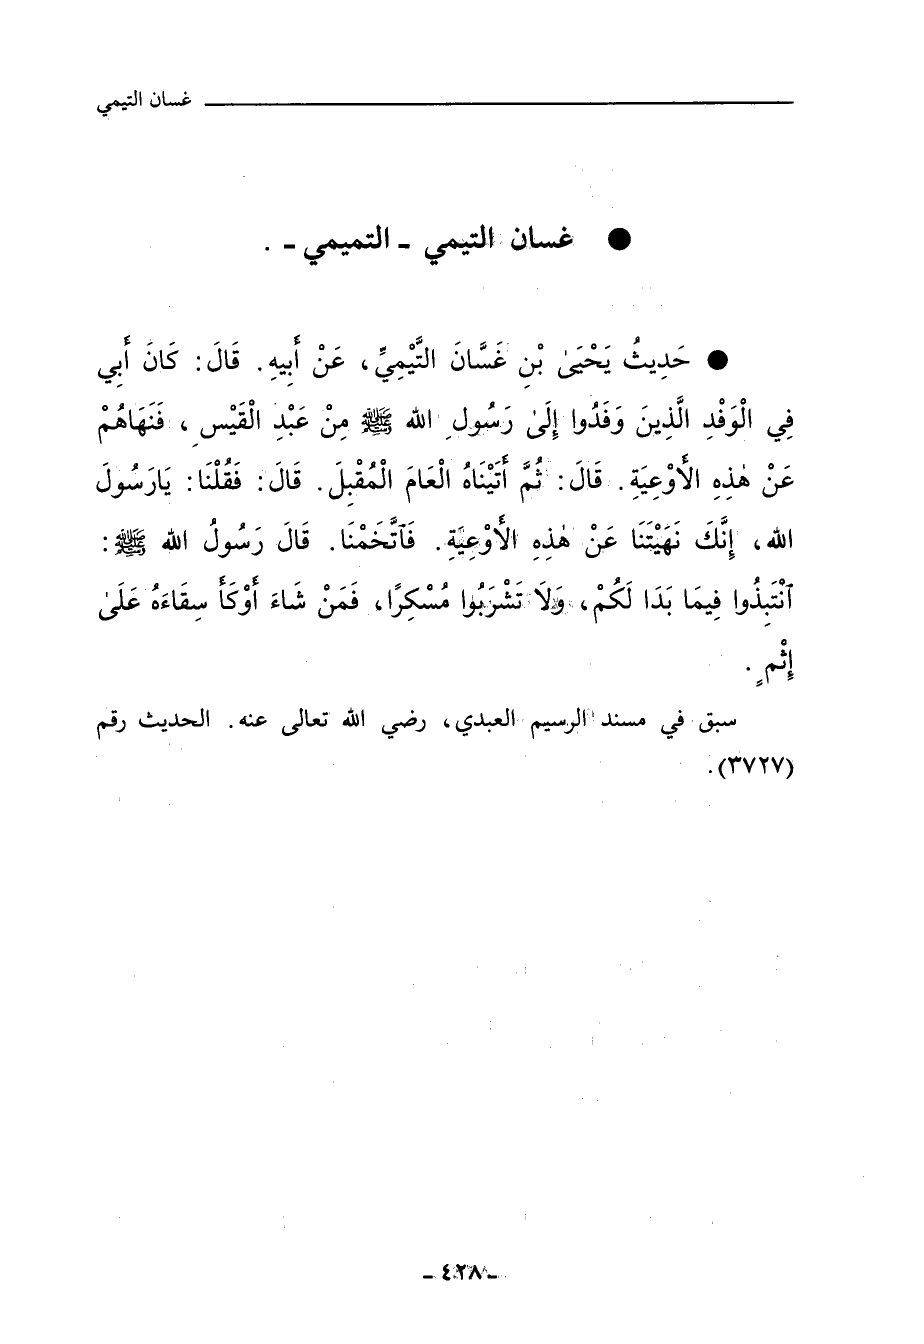 غسان التيمي
● غسان التيمي - التميمي - .
● حَدِيثُ يَحْيَىٰ بْنِ غَسَّانَ التَّيْمِيِّ، عَنْ أَبِيهِ. قَالَ: كَانَ أَبِي
فِي الْوَفْدِ الَّذِينَ وَفَدُوا إِلَىٰ رَسُولِ الله ﷺ مِنْ عَبْدِ الْقَيْسِ، فَنَهَاهُمْ
عَنْ هٰذِهِ الأَوْعِيَةِ. قَالَ: ثُمَّ أَتَيْنَاهُ الْعَامَ الْمُقْبِلَ. قَالَ: فَقُلْنَا: يَارَسُولَ
الله، إِنَّكَ نَهَيْتَنَا عَنْ هٰذِهِ الأَوْعِيَةِ. فَٱتَّخَمْنَا. قَالَ رَسُولُ الله ﷺ:
ٱنْتَبِذُوا فِيمَا بَدَا لَكُمْ، وَلَا تَشْرَبُوا مُسْكِرًا، فَمَنْ شَاءَ أَوْكَأَ سِقَاءَهُ عَلَىٰ
إِثْمٍ.
سبق في مسند الرسيم العبدي، رضي الله تعالى عنه. الحديث رقم
(٣٧٢٧).
- ٤٢٨ -